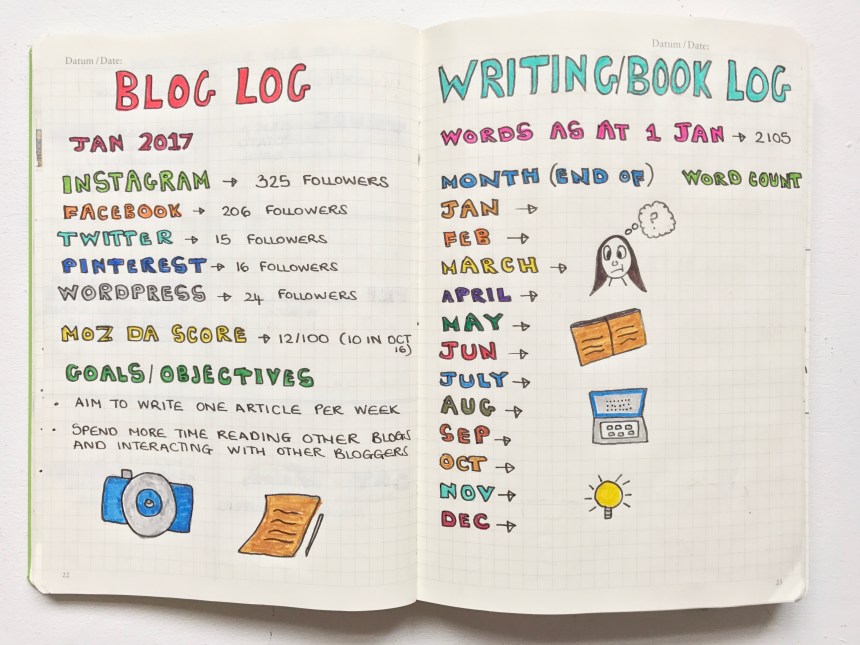 Datum / Date:
BLOG LOG
JAN 2017
INSTAGRAM → 325 FOLLOWERS
FACEBOOK → 206 FOLLOWERS
TWITTER → 15 FOLLOWERS
PINTEREST → 16 FOLLOWERS
WORDPRESS → 24 FOLLOWERS
MOZ DA SCORE → 12/100 (10 IN OCT
16)
GOALS/OBJECTIVES
• AIM TO WRITE ONE ARTICLE PER WEEK
• SPEND MORE TIME READING OTHER BLOGS
AND INTERACTING WITH OTHER BLOGGERS
22
Datum / Date:
WRITING/BOOK LOG
WORDS AS AT 1 JAN → 2105
MONTH (END OF) WORD COUNT
JAN →
?
FEB →
MARCH →
APRIL →
MAY →
JUN →
JULY →
AUG →
SEP →
OCT →
NOV →
DEC →
23